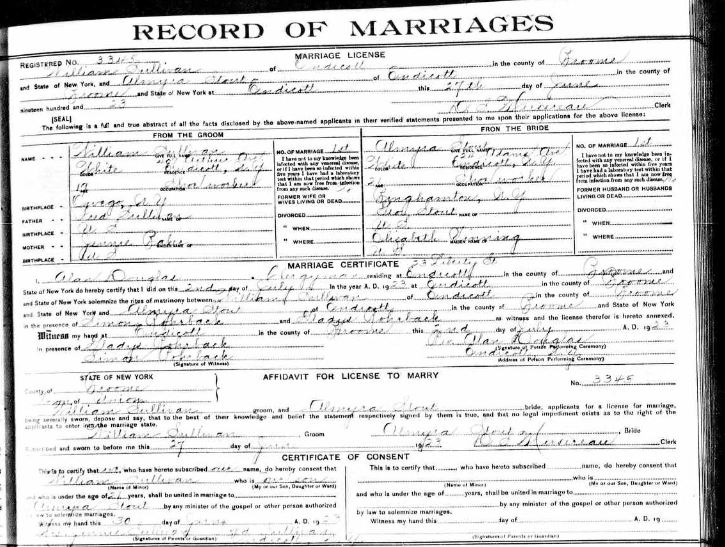 RECORD OF MARRIAGES
MARRIAGE LICENSE
REGISTERED No. 3345
William Sullivan of Endicott in the county of Broome
and State of New York, and Almyra Stout of Endicott in the county of
Broome and State of New York at Endicott this 27th day of June
nineteen hundred and 23 Clerk
[SEAL]
The following is a full and true abstract of all the facts disclosed by the above-named applicants in their verified statements presented to me upon their applications for the above license:
FROM THE GROOM
FROM THE BRIDE
NAME William Sullivan
White Endicott, N.Y.
COLOR RESIDENCE
19
OCCUPATION
BIRTHPLACE Owego, N.Y.
FATHER Fred Sullivan
BIRTHPLACE U.S.
MOTHER Jennie
BIRTHPLACE U.S.
NO. OF MARRIAGE 1st
I have not to my knowledge been infected with any venereal disease, or if I have been so infected within five years I have had a laboratory test within that period which shows that I am now free from infection from any such disease.
FORMER WIFE OR WIVES LIVING OR DEAD
DIVORCED
" WHEN
" WHERE
Almyra Stout
White Endicott, N.Y.
OCCUPATION
Binghamton, N.Y.
Stout
U.S.
Elizabeth
MAIDEN NAME OF
NO. OF MARRIAGE 1st
I have not to my knowledge been infected with any venereal disease, or if I have been so infected within five years I have had a laboratory test within that period which shows that I am now free from infection from any such disease.
FORMER HUSBAND OR HUSBANDS LIVING OR DEAD
DIVORCED
" WHEN
" WHERE
MARRIAGE CERTIFICATE
I, Alan Douglas, Clergyman residing at Endicott in the county of Broome and
State of New York do hereby certify that I did on this 2nd day of July in the year A. D. 1923 at Endicott in the county of Broome
and State of New York solemnize the rites of matrimony between William Sullivan of Endicott in the county of Broome
and State of New York and Almyra Stout of Endicott in the county of Broome and State of New York
in the presence of Simon Rohrback and Gladys Rohrback as witness and the license therefor is hereto annexed.
Witness my hand at Endicott in the county of Broome this 2nd day of July A. D. 1923
in presence of Gladys Rohrback Rev. Alan Douglas
(Signature of Person Performing Ceremony)
Simon Rohrback Endicott N.Y.
(Signature of Witness) Address of Person Performing Ceremony)
STATE OF NEW YORK
AFFIDAVIT FOR LICENSE TO MARRY
No. 3345
County of Broome
of Union
William Sullivan groom, and Almyra Stout bride, applicants for a license for marriage,
being severally sworn, depose and say, that to the best of their knowledge and belief the statement respectively signed by them is true, and that no legal impediment exists as to the right of the
applicants to enter into the marriage state.
William Sullivan, Groom Almyra Stout, Bride
Subscribed and sworn to before me this 27 day of June 1923 Clerk
CERTIFICATE OF CONSENT
This is to certify that we, who have hereto subscribed our name, do hereby consent that
William Sullivan who is our son
(Name of Minor) (My or our Son, Daughter or Ward)
and who is under the age of 21 years, shall be united in marriage to
Almyra Stout by any minister of the gospel or other person authorized
by law to solemnize marriages.
Witness my hand this 30 day of June A. D. 1923
(Signatures of Parents or Guardian)
This is to certify that, who have hereto subscribed name, do hereby consent that
who is
(Name of Minor) (My or our Son, Daughter or Ward)
and who is under the age of years, shall be united in marriage to
by any minister of the gospel or other person authorized
by law to solemnize marriages.
Witness my hand this day of A. D. 19
(Signatures of Parents or Guardian)